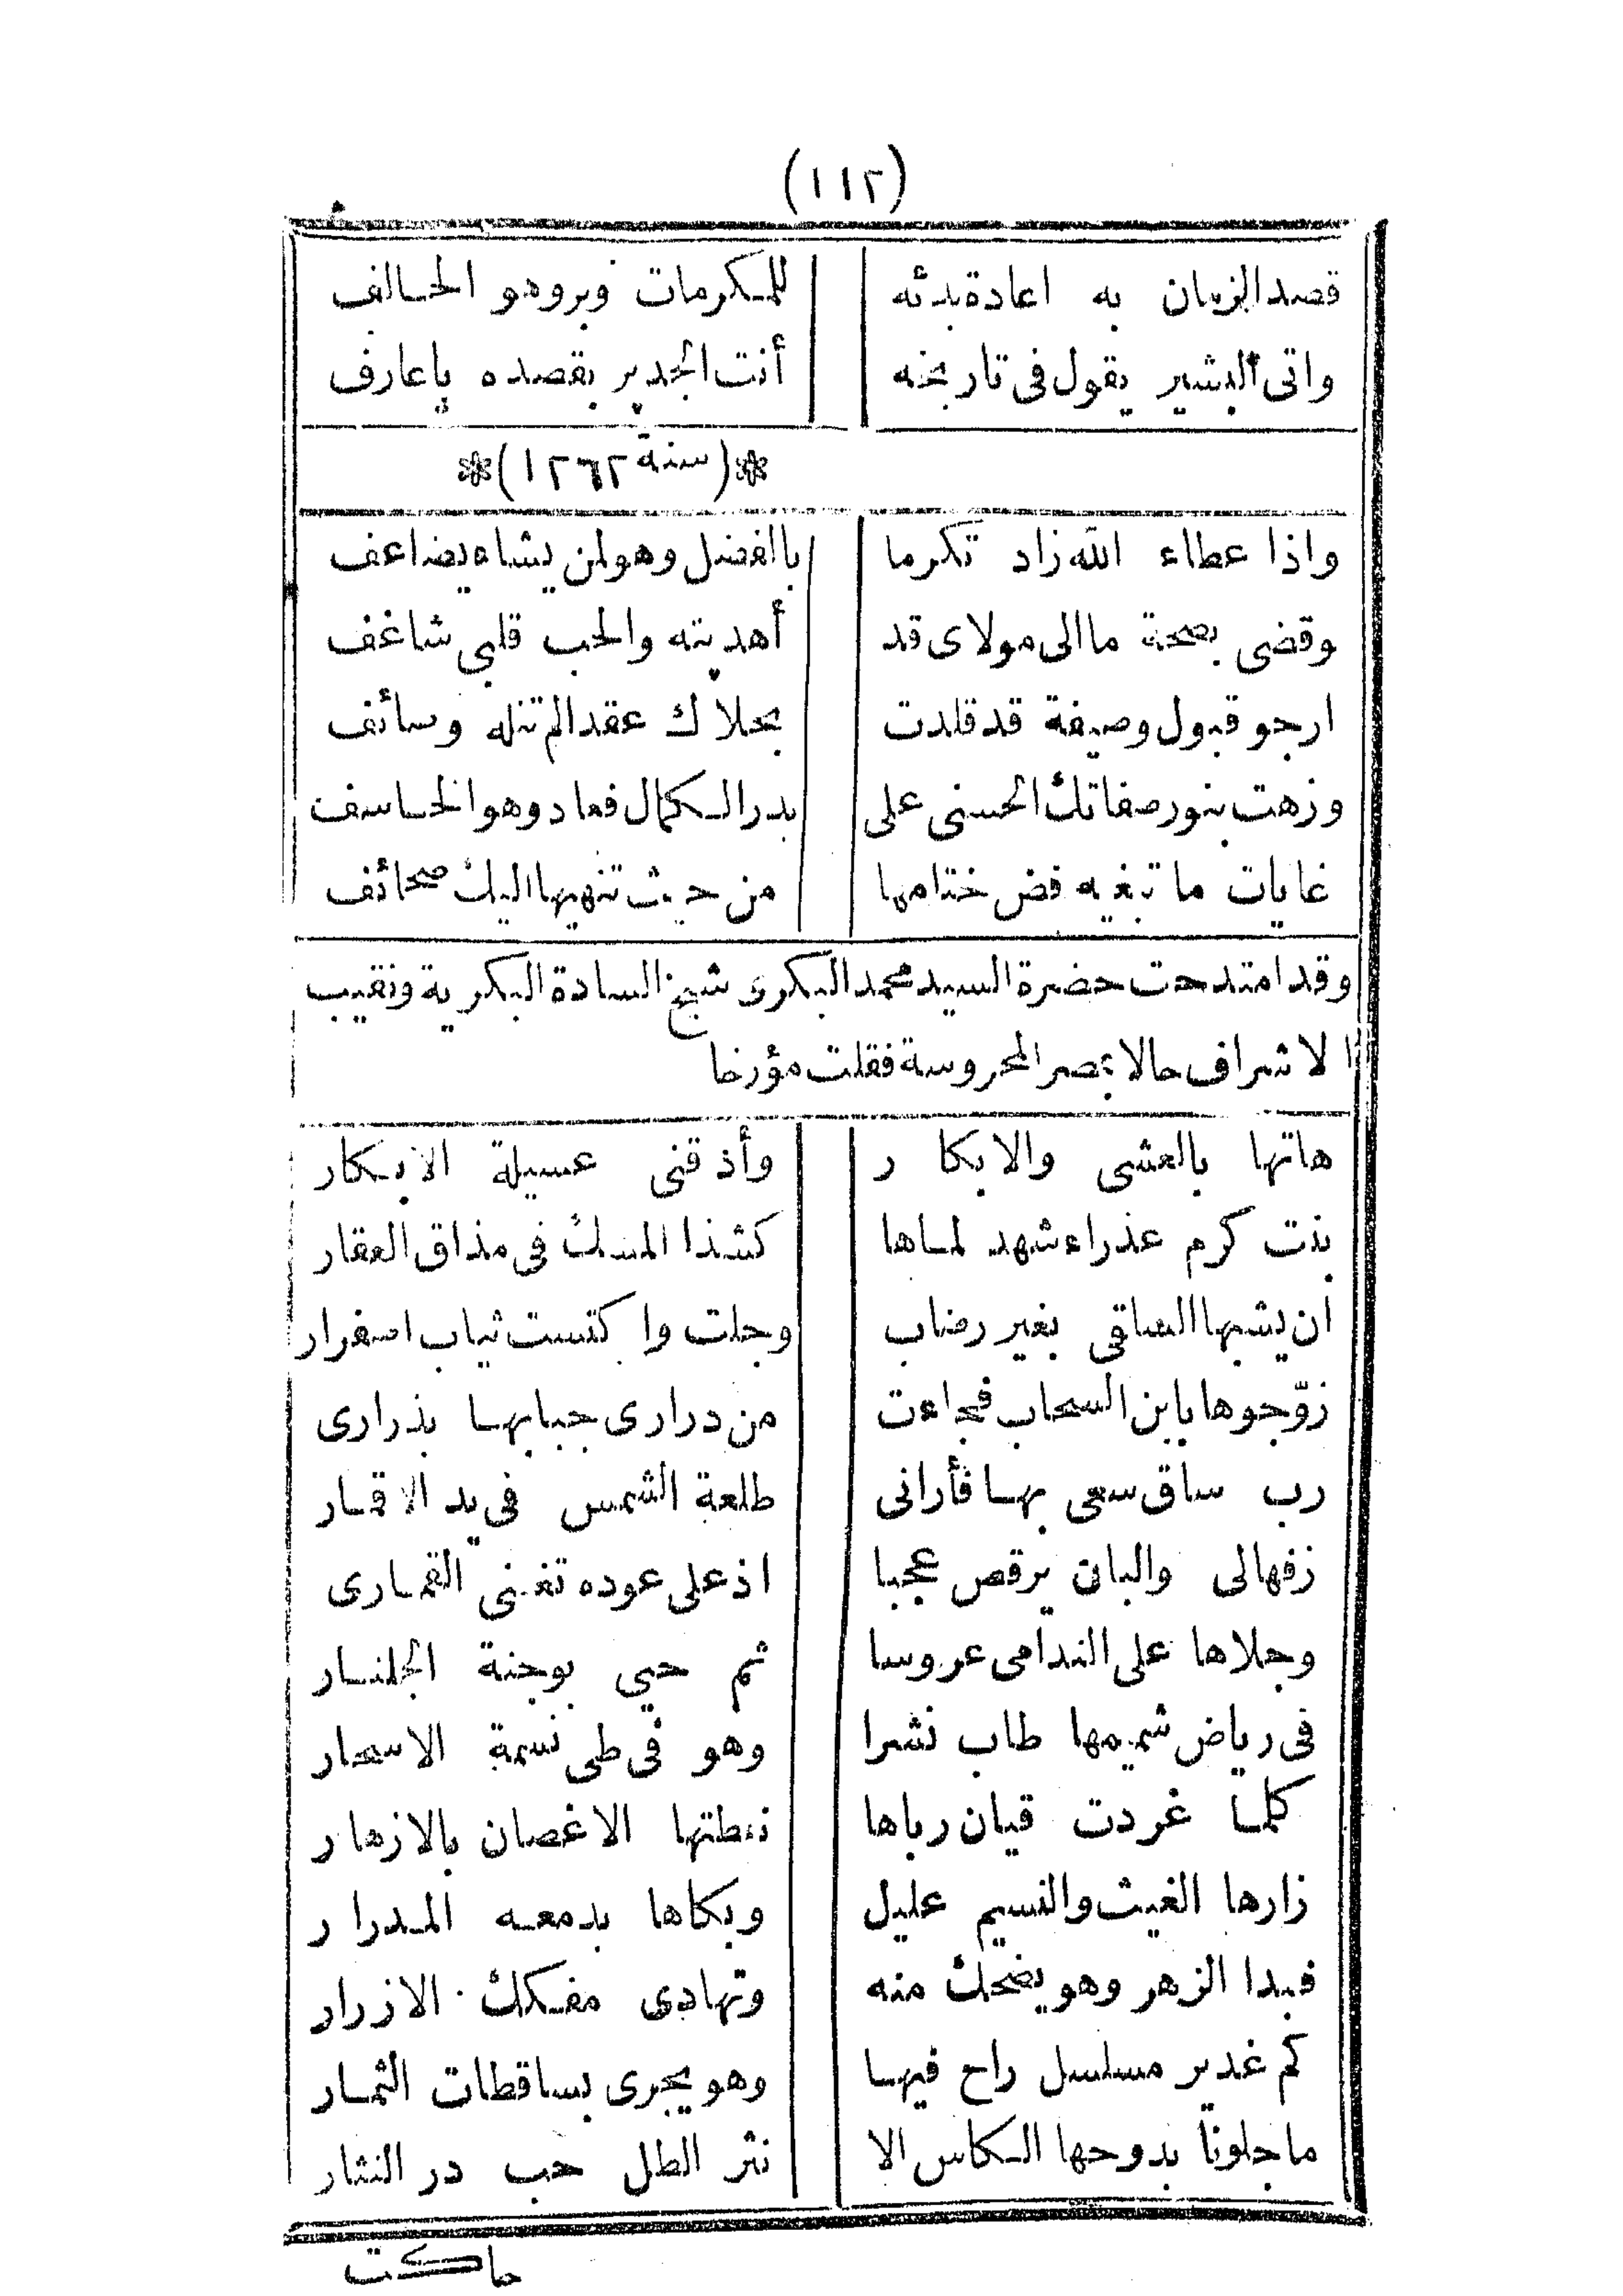 (١١٢)
قصد الزمان به اعادة بدئه للمكرمات وبروهو الحالف
واتى البشير يقول فى تاريخه أنت الجدير بقصده ياعارف
*(سنة ١٢٦٢)*
واذا عطاء الله زاد تكرما بالفضل وهو لمن يشاء يضاعف
وقضى بصحة ما الى مولاى قد أهديته والحب قلبى شاغف
ارجو قبول وصيفة قد قلدت بحلاك عقدا لم تنله وسائف
وزهت بنور صفاتك الحسنى على بدر الكمال فعاد وهو الخاسف
غايات ما تبغيه فض ختامها من حيث تنهيها اليك صحائف
وقد امتدحت حضرة السيد محمد البكرى شيخ السادة البكرية ونقيب
الاشراف حالا بمصر المحروسة فقلت مؤرخا
هاتها بالعشى والابكار وأذقنى عسيلة الابكار
بنت كرم عذراء شهد لماها كشذا المسك فى مذاق العقار
ان يشبها الساقى بغير رضاب وجلت واكتست ثياب اصفرار
زوّجوها بابن السحاب فجاءت من درارى حبابها بذرارى
رب ساق سعى بها فأرانى طلعة الشمس فى يد الاقمار
زفهالى والبان يرقص عجبا اذ على عوده تغنى القمارى
وجلاها على الندامى عروسا ثم حيى بوجنة الجلنار
فى رياض شميمها طاب نشرا وهو فى طى نسمة الاسحار
كلما غردت قيان رباها نقطتها الاغصان بالازهار
زارها الغيث والنسيم عليل وبكاها بدمعه المدرار
فبدا الزهر وهو يضحك منه وتهادى مفكك الازرار
كم غدير مسلسل راح فيها وهو يجرى بساقطات الثمار
ما جلونا بدوحها الكاس الا نثر الطل حب در النثار
حاكت